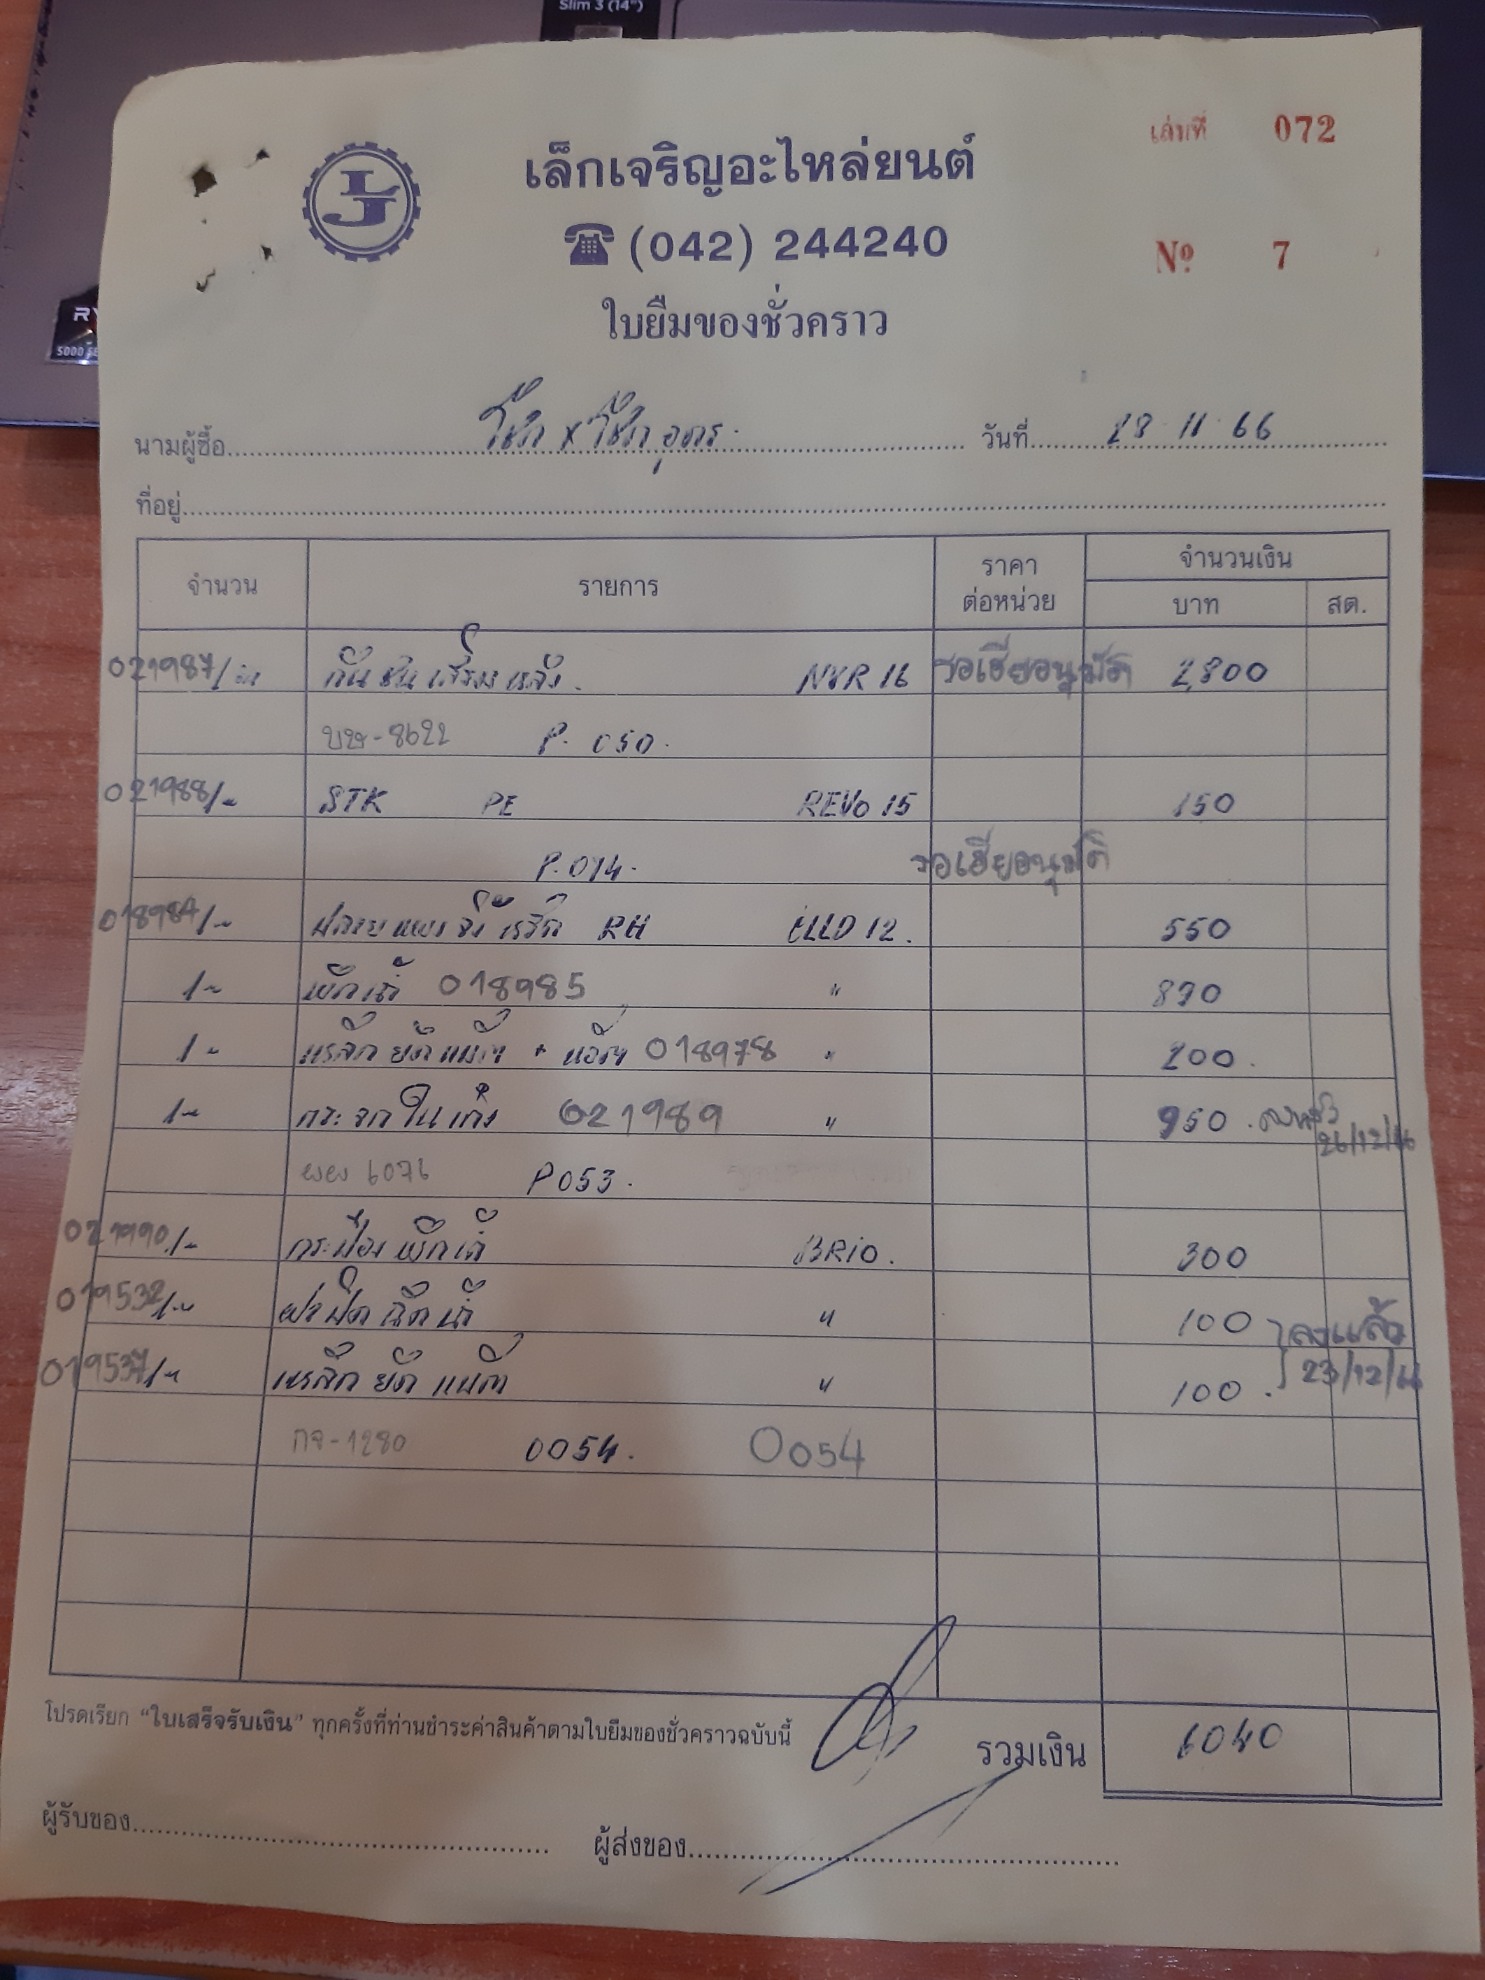 Slim 3 (14")
เล่มที่ 072
เล็กเจริญอะไหล่ยนต์
LJ
☎ (042) 244240
Nº 7
ใบยืมของชั่วคราว
RY
5000 SE
นามผู้ซื้อ โชค x โชค อุดร. วันที่ 28 11 66
ที่อยู่
จำนวน รายการ ราคาต่อหน่วย จำนวนเงิน
บาท สต.
021987/ กันชนเสริมหลัง. รอเฮียอนุมัติ 2,800
บษ-8622 P. 050.
021988/ STK PE REVO 15 150
P.074. รอเฮียอนุมัติ
018984/ RH 12. 550
1 พักน้ำ 018985 " 890
1 พลาสติก 018978 " 200.
1 กระจกในเก๋ง 021989 " 950. ลงแล้ว 26/12/66
6076 P053.
021990/ กระป๋องพักน้ำ BRIO. 300
019532/ ฝาปิดฉีดน้ำ " 100
ลงแล้ว
019537/ " 100. 23/12/66
กจ-1280 0054. 0054
โปรดเรียก "ใบเสร็จรับเงิน" ทุกครั้งที่ท่านชำระค่าสินค้าตามใบยืมของชั่วคราวฉบับนี้
รวมเงิน 6040
ผู้รับของ ผู้ส่งของ